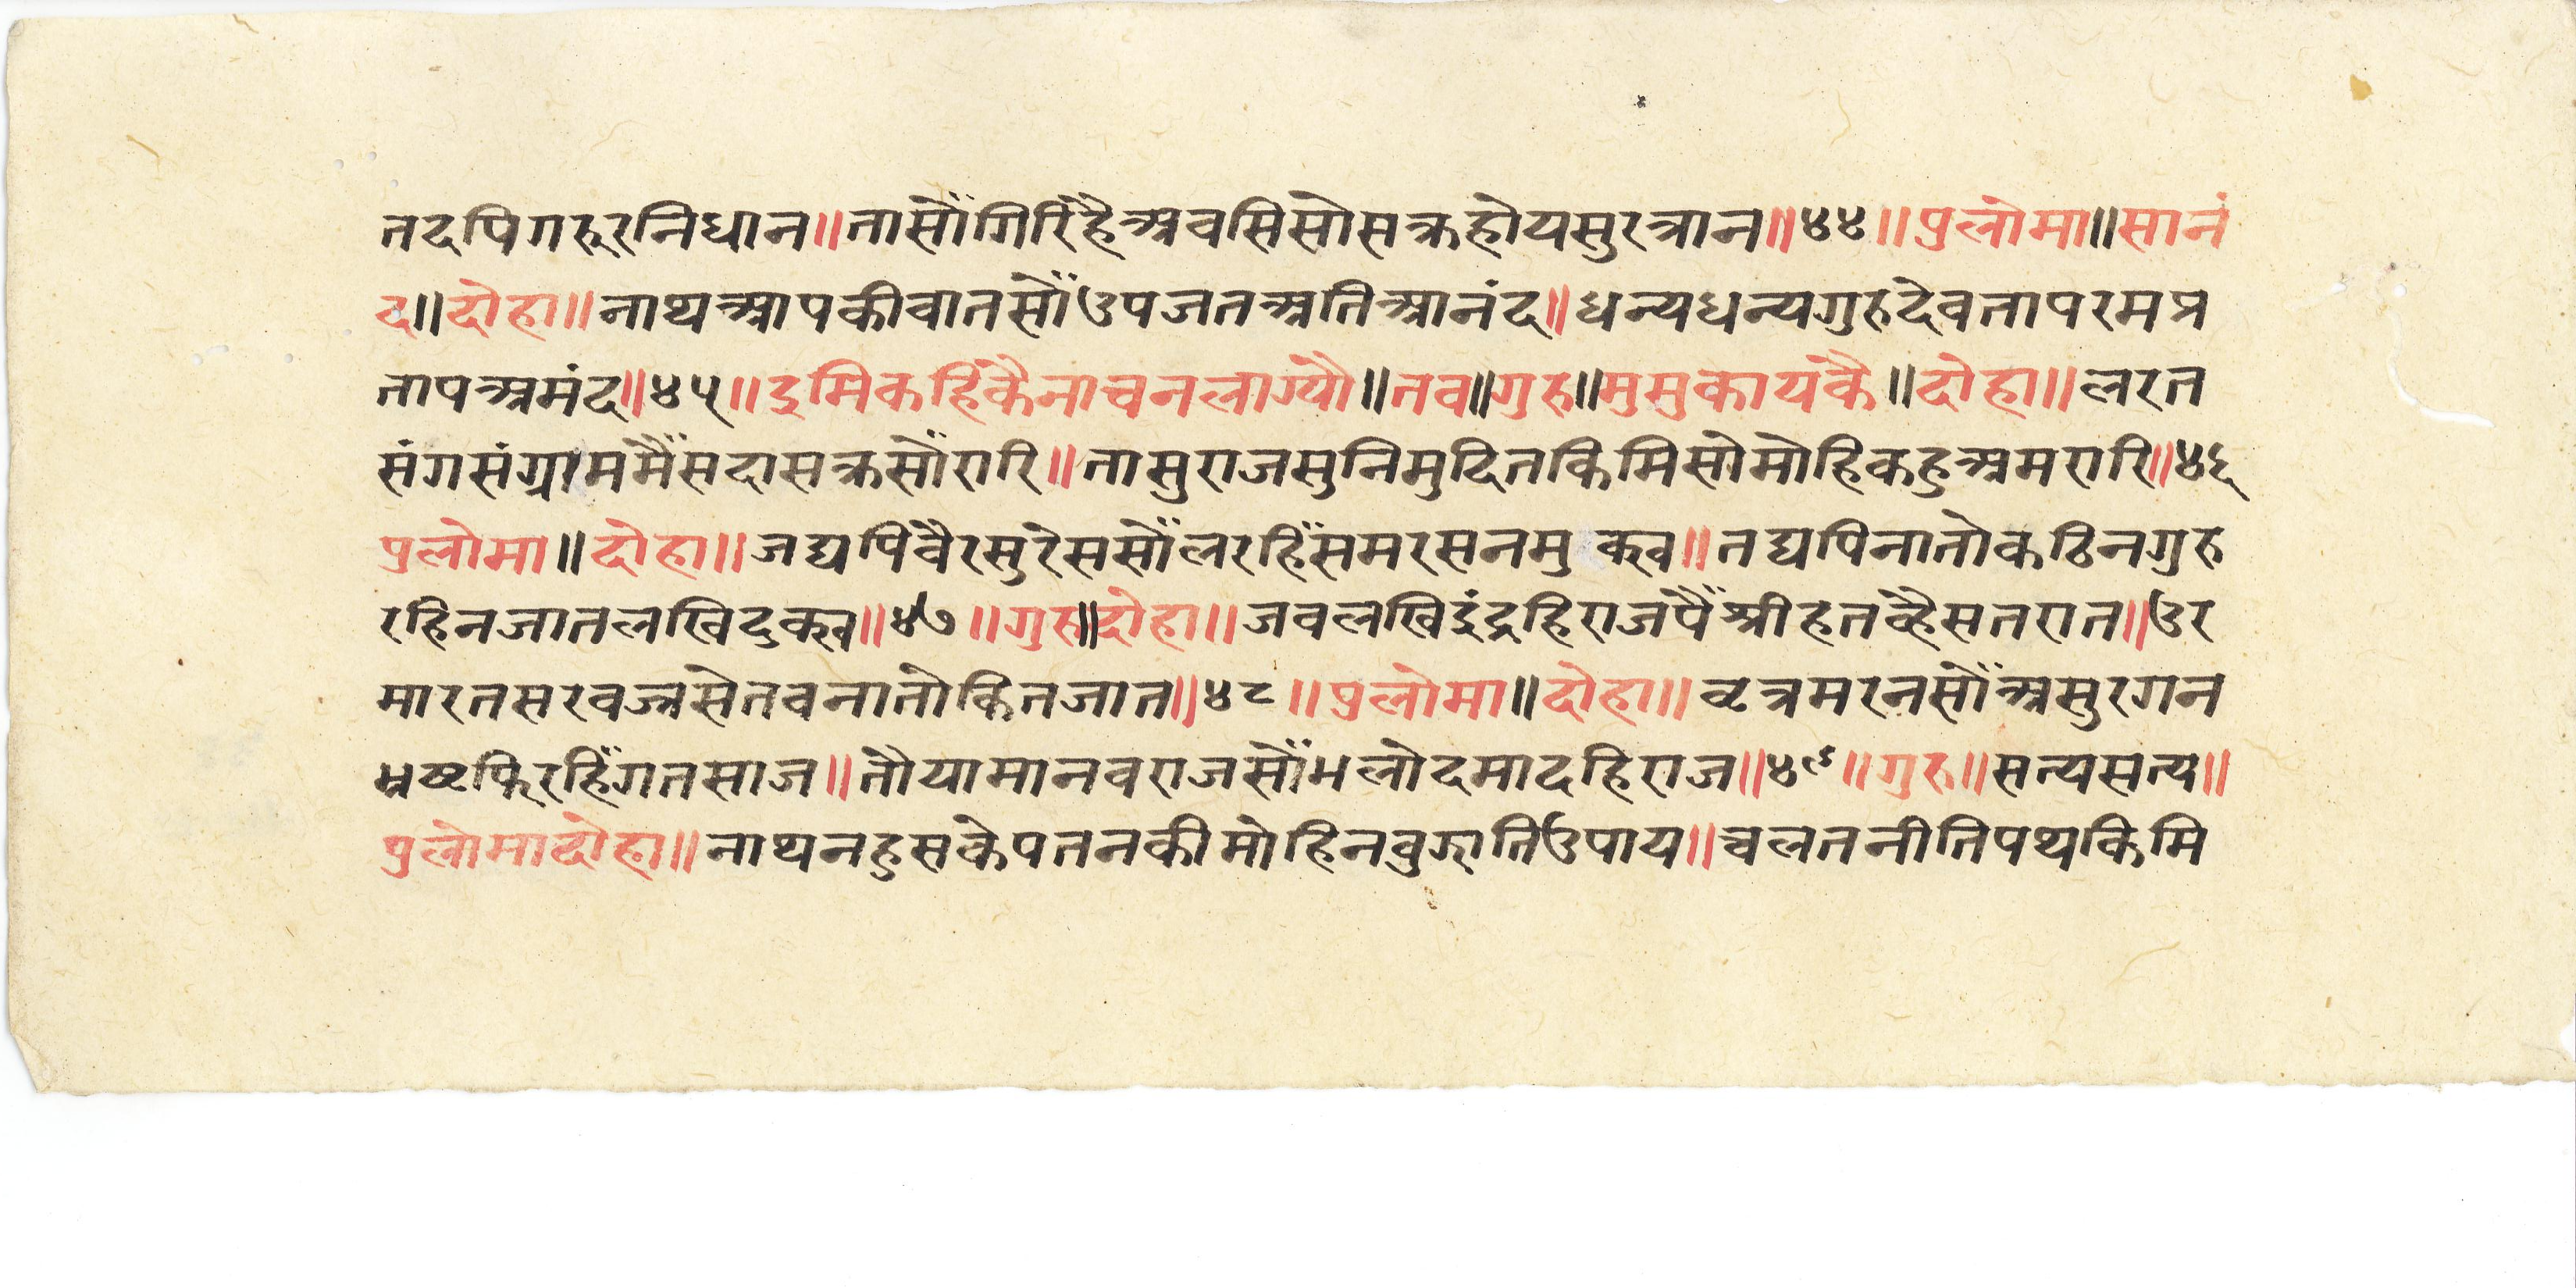 तदपिगरूरनिधान॥तासौंगिरिहैंअवसिसोसक्रहोयसुरत्रान॥४४॥पुलोमा॥सानं
द॥दोहा॥नाथआपकीवातसौंउपजतअतिआनंद॥धन्यधन्यगुरुदेवतापरमप्र
तापअमंद॥४५॥इमिकहिंकैनाचनलाग्यौ॥तव॥गुरु॥मुसुकायकै॥दोहा॥लरत
संगसंग्राममैंसदासक्रसौंरारि॥तासुराजसुनिमुदितकिमिसोमोहिकहुअमरारि॥४६
पुलोमा॥दोहा॥जद्यपिवैरसुरेससौंलरहिंसमरसनमुक्ख॥तद्यपिनातोकठिनगुरु
रहिनजातलखिदुक्ख॥४७॥गुरु॥दोहा॥जवलखिइंद्रहिराजपैंश्रीहतव्हैसतरात॥उर
मारतसरवज्रसेतवनातोकितजात॥४८॥पुलोमा॥दोहा॥वृत्रमरनसौंअसुरगन
भ्रष्टफिरहिंगतसाज॥तौयामानवराजसौंभलोदमादहिराज॥४९॥गुरु॥सत्यसत्य॥
पुलोमादोहा॥नाथनहुसकेपतनकीमोहिनवुझातिउपाय॥चलतनीतिपथकिमि